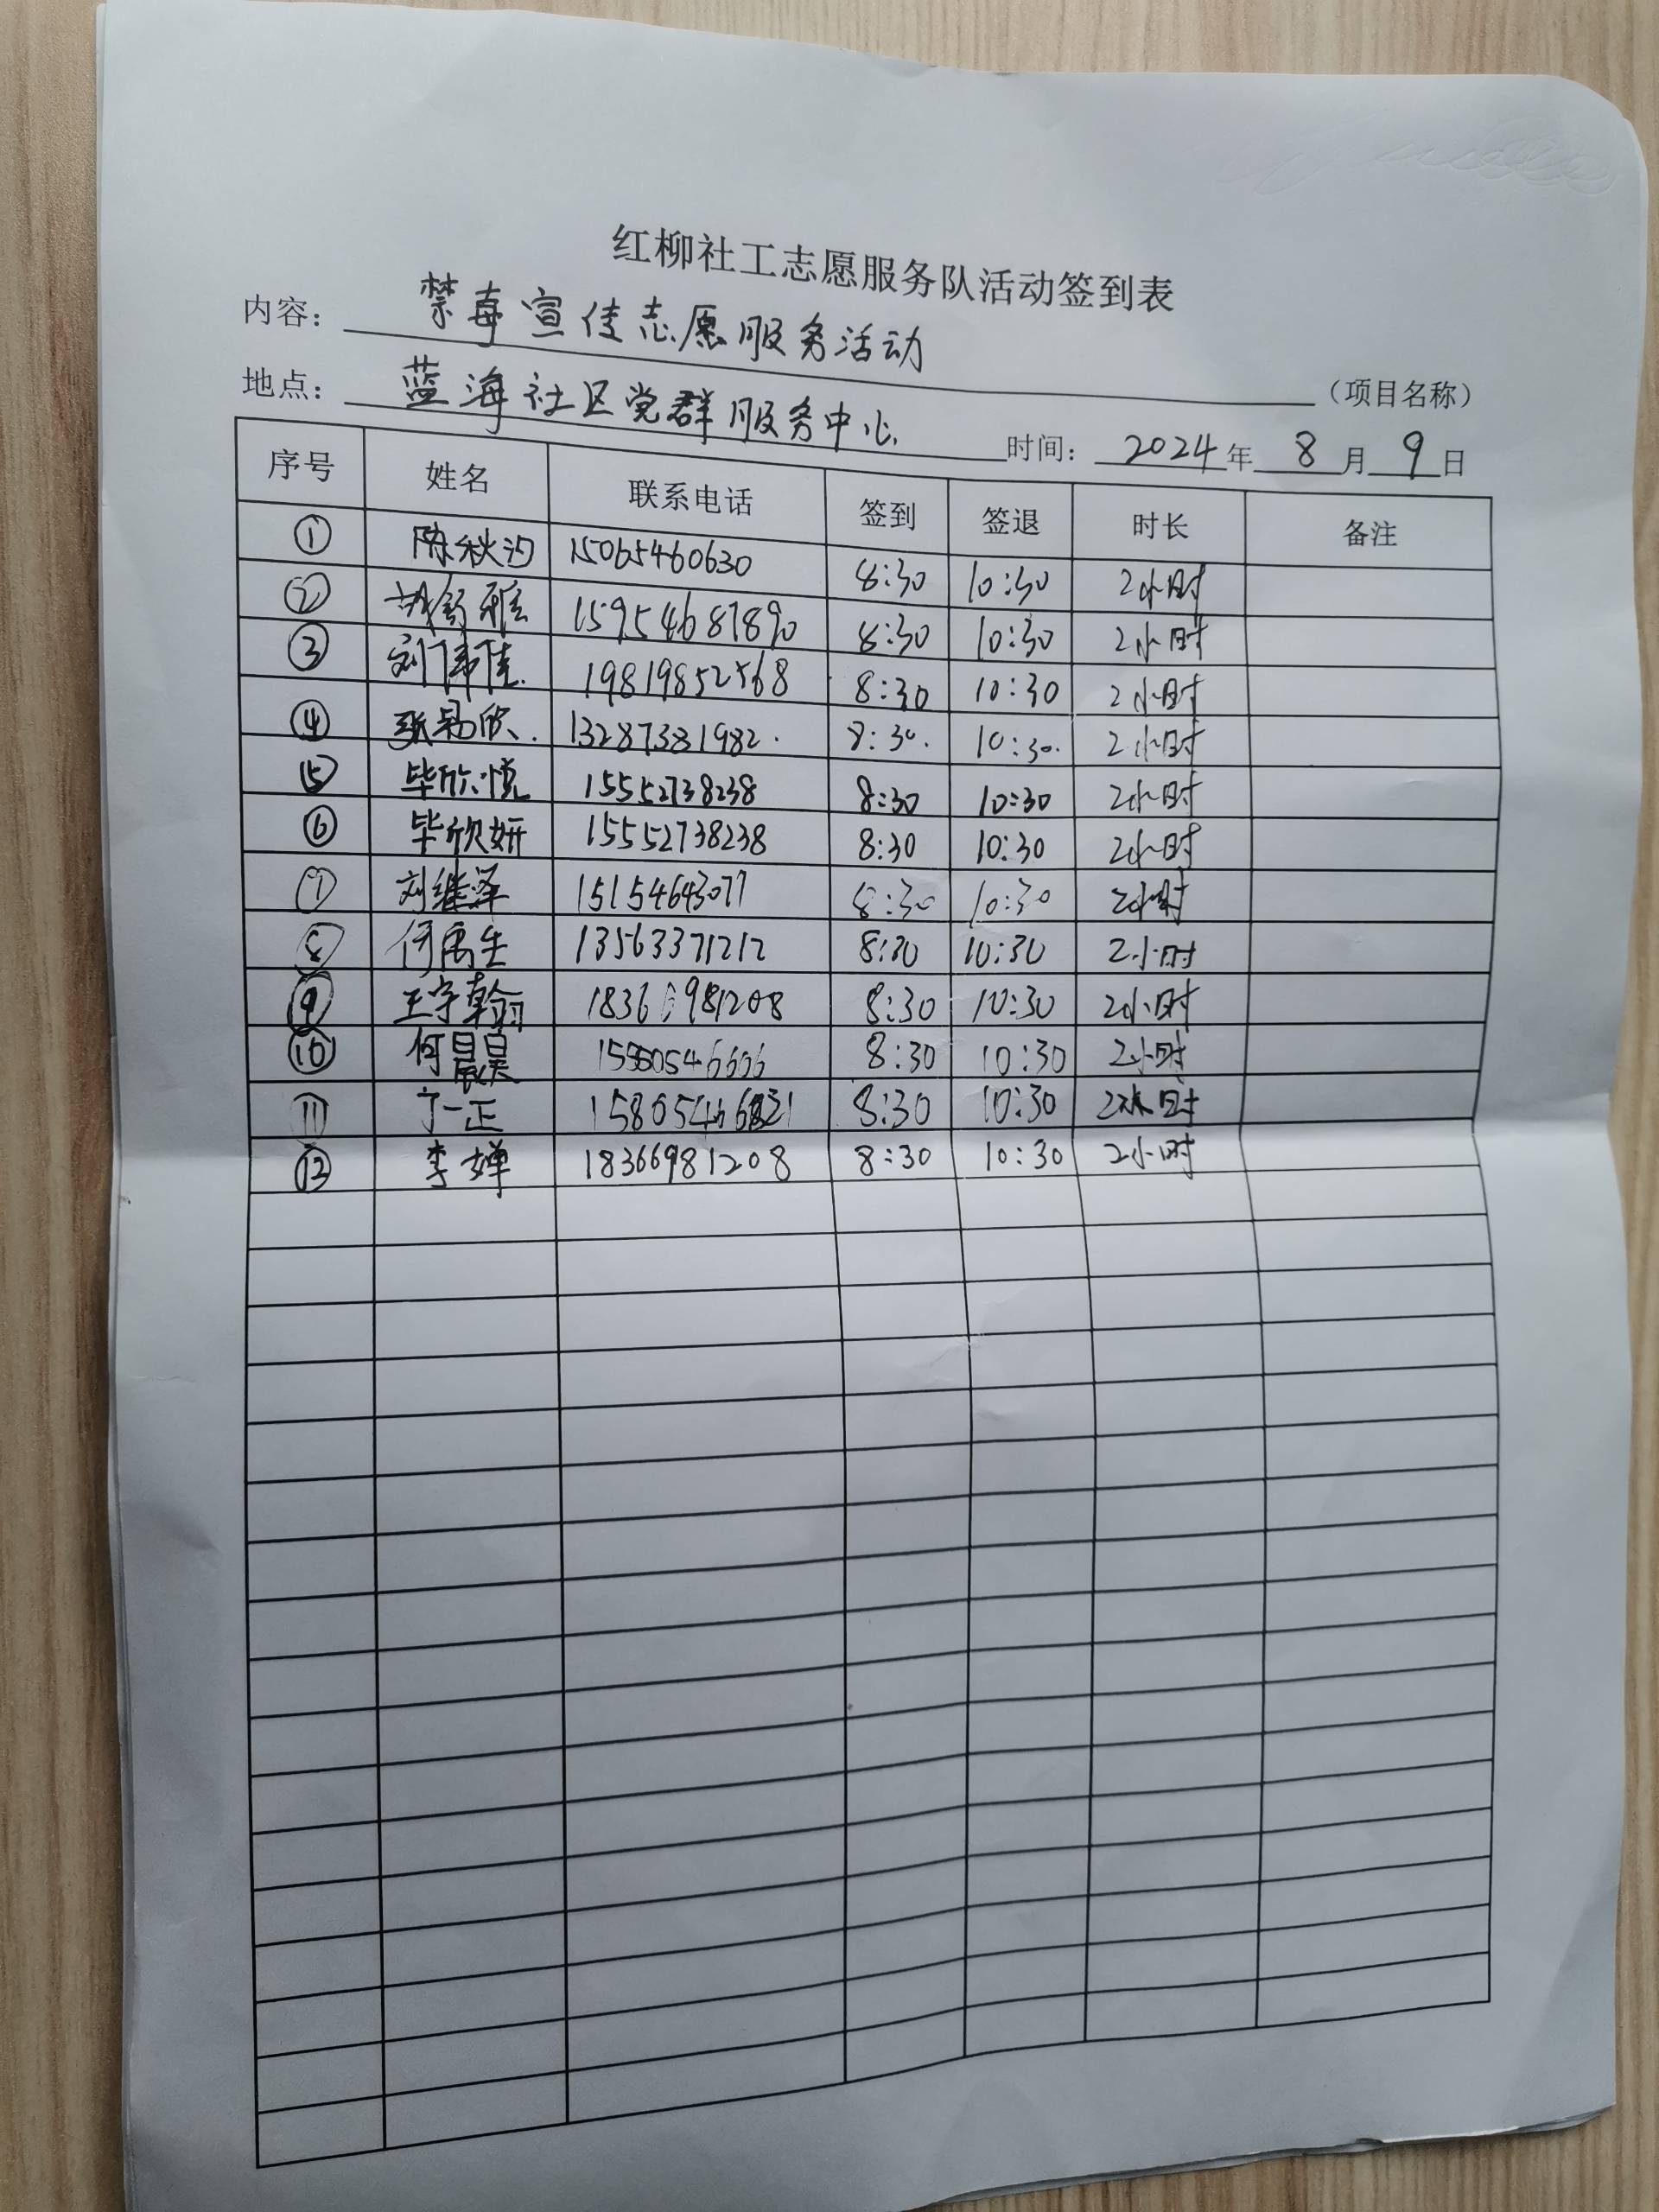 红柳社工志愿服务队活动签到表
内容： 禁毒宣传志愿服务活动 （项目名称）
地点： 蓝海社区党群服务中心 时间： 2024年 8月 9日
序号 姓名 联系电话 签到 签退 时长 备注
① 陈秋汐 15065460630 8:30 10:30 2小时
② 胡舒雅 15954687890 8:30 10:30 2小时
③ 刘伟佳 19819852568 8:30 10:30 2小时
④ 张易欣. 13287381982. 8:30. 10:30. 2小时
⑤ 毕欣悦 15552738238 8:30 10:30 2小时
⑥ 毕欣妍 15552738238 8:30 10:30 2小时
⑦ 刘继泽 15154643077 8:30 10:30 2小时
⑧ 何禹生 13563371212 8:30 10:30 2小时
⑨ 王宇翰 8:30 10:30 2小时
⑩ 何晨昊 8:30 10:30 2小时
⑪ 丁一正 8:30 10:30 2小时
⑫ 李婵 18366981208 8:30 10:30 2小时